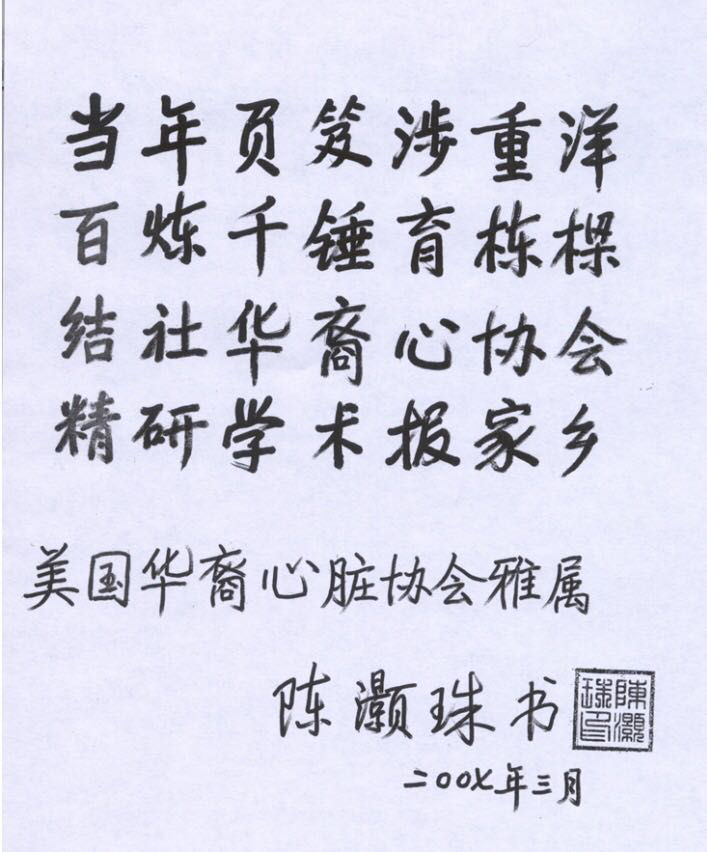 当年负笈涉重洋
百炼千锤育栋樑
结社华裔心协会
精研学术报家乡
美国华裔心脏协会雅属
陈灏珠书
陳灝珠印
二00七年三月